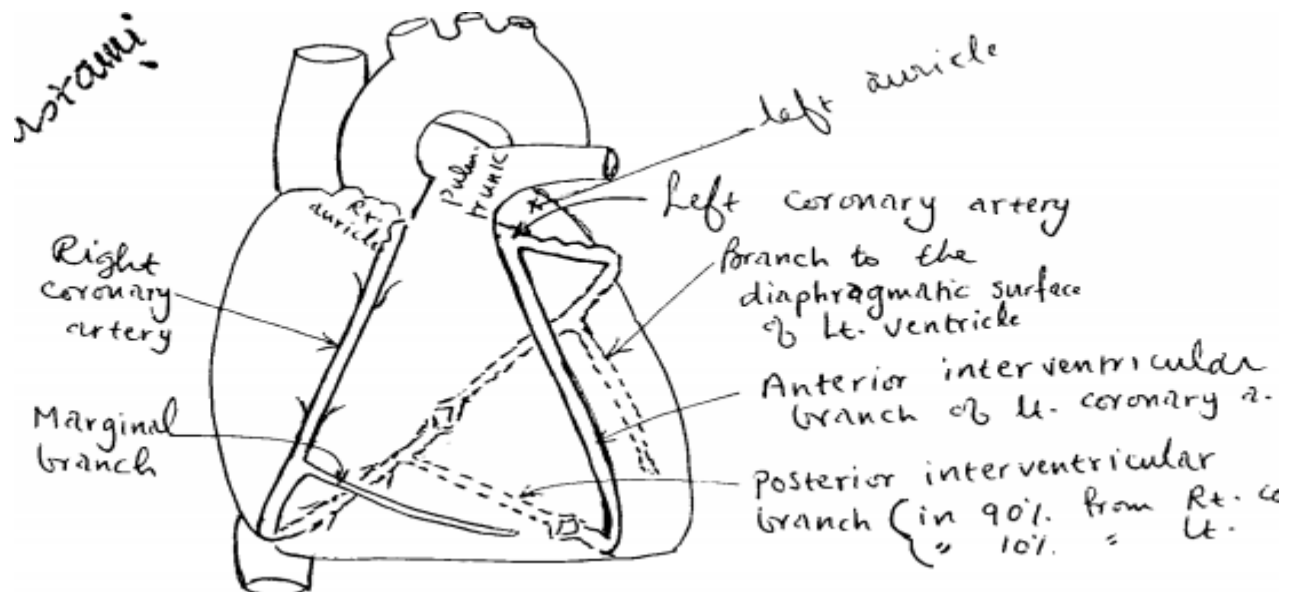 left auricle
Pulm.
trunk
Rt.
auricle
Left coronary artery
Right
coronary
artery
Branch to the
diaphragmatic surface
of Lt. ventricle
Anterior interventricular
branch of lt. coronary a.
Marginal
branch
Posterior interventricular
branch { in 90% from Rt. co
" 10% " Lt.